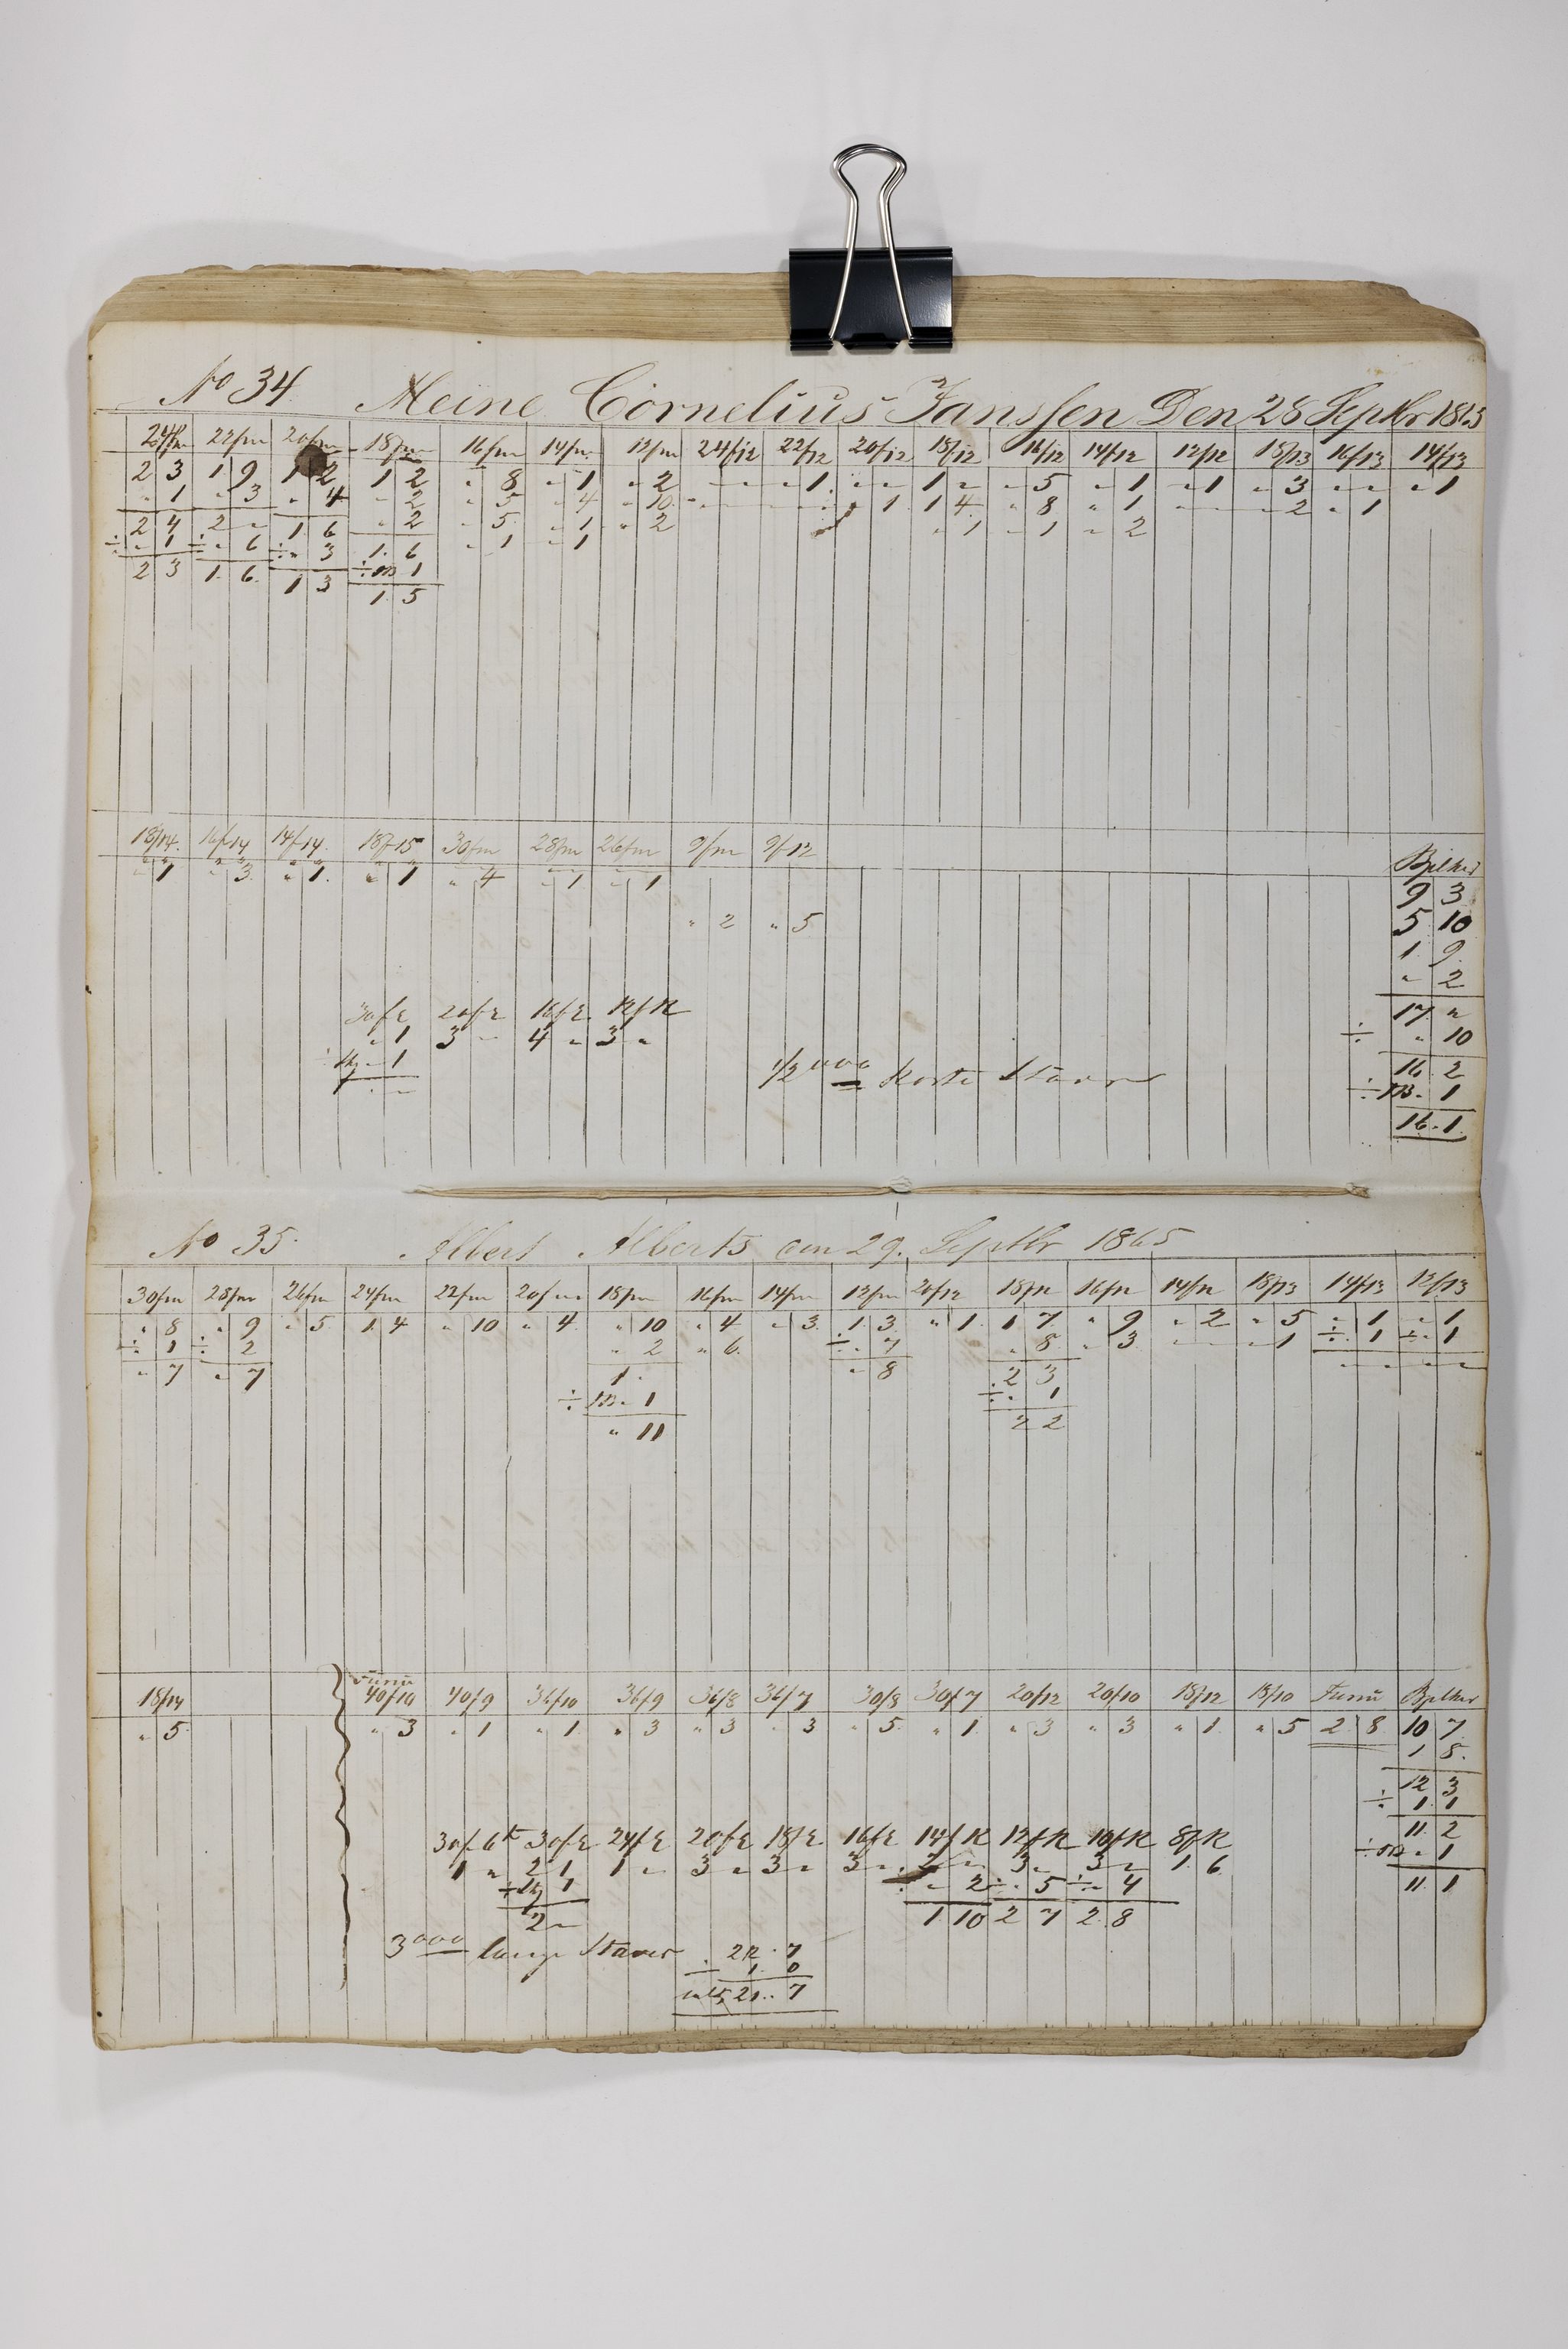 No 34 Meine Cornelius Janssen Den 28 Septbr 1865
24fm 22fm 20fm 18fm 16fm 14fm 12fm 24f12 22f12 20f12 18f12 16f12 14f12 12f12 18f13 16f13 14f13
2 3 1 9 1 2 1 2 " 8 " 1 " 2 " " " 1 " " 1 " " 5 " 1 " 1 " 3 " " " 1
" 1 " 3 " 4 " 2 " 5 " 4 " 10 " 1 1 4 " 8 " 1 " 2 " 1
2 4 2 " 1 6 " 2 " 5 " 1 " 2 " 1 " 1 " 2
÷ " 1 ÷ " 6 ÷ " 3 1 6 " 1 " 1
2 3 1 6 1 3 ÷ 1
1 5
18f14 16f14 14f14 18f15 30fm 28fm 26fm 9fm 9f12
" 1 " 3 " 1 " 1 " 4 " 1 " 1
" 2 " 5
30f 20f 16f 12f
" 1 3 " 4 " 3 "
" 1
1/2 000 Korte Staver
9 3
5 10
1 9
" 2
17 "
÷ " 10
16 2
÷ 1
16 1
No 35 Albert Alberts den 29. Septbr 1865
30fm 28fm 26fm 24fm 22fm 20fm 18fm 16fm 14fm 12fm 20f12 18f12 16f12 14f12 18f13 14f13 12f13
" 8 " 9 " 5 1 4 " 10 " 4 " 10 " 4 " 3 1 3 " 1 1 7 " 9 " 2 " 5 " 1 " 1
÷ 1 ÷ 2 " 2 " 6 ÷ " 7 " 8 " 3 " 1 ÷ 1 ÷ 1
" 7 " 7 1 " " 8 2 3 " " " "
÷ 1 ÷ " 1
" 11 2 2
18f14 40f10 40f9 36f10 36f9 36f8 36f7 30f8 30f7 20f12 20f10 18f12 18f10
" 5 " 3 " 1 " 1 " 3 " 3 " 3 " 5 " 1 " 3 " 3 " 1 " 5 2 8 10 7
1 8
12 3
÷ 1 1
11 2
÷ " 1
11 1
30f 30f 24f 20f 18f 16f 14f 12f 10f 8f
1 " 2 1 1 " 3 " 3 " 3 " " 3 " 3 " 1 6
÷ 1 ÷ " 2 ÷ " 5 ÷ " 4
2 " 1 10 2 7 2 8
3000 lange Staver
22 . 7
÷ 1 . 0
21 . 7